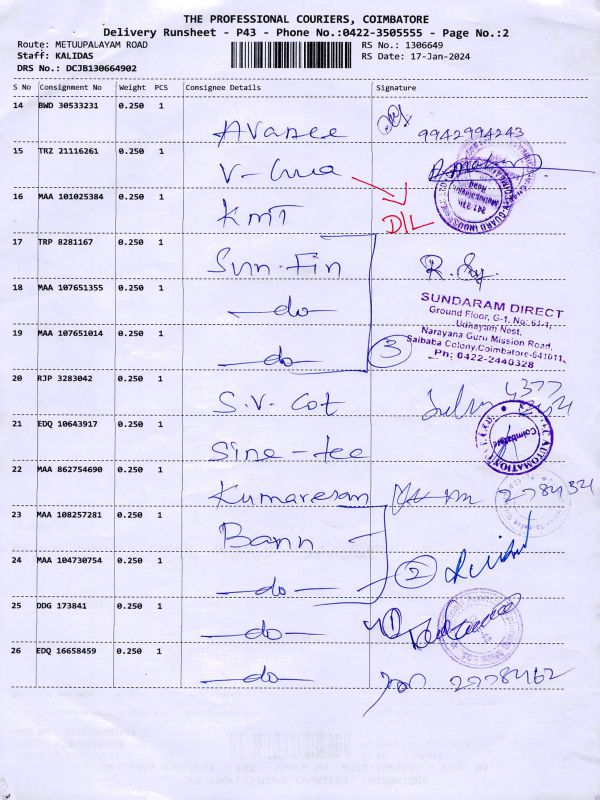 THE PROFESSIONAL COURIERS, COIMBATORE
Delivery Runsheet - P43 - Phone No.:0422-3505555 - Page No.:2
Route: METUUPALAYAM ROAD
RS No.: 1306649
Staff: KALIDAS
RS Date: 17-Jan-2024
DRS No.: DCJB130664902
S No Consignment No Weight PCS Consignee Details Signature
14 BWD 30533231 0.250 1
Avanee 9942994243
15 TRZ 21116261 0.250 1
V-
16 MAA 101025384 0.250 1
KMT D/L
17 TRP 8281167 0.250 1
Sun-Fin R.
18 MAA 107651355 0.250 1
-do-
SUNDARAM DIRECT
Ground Floor, G-1, No: 61-1,
Udhayam Nest,
Narayana Guru Mission Road,
Saibaba Colony,Coimbatore-641011,
Ph: 0422-2440328
19 MAA 107651014 0.250 1
-do- 3
20 RJP 3283042 0.250 1
S.V. Cot
21 EDQ 10643917 0.250 1
Sine-tee
AUTOMATION
Coimbatore
22 MAA 862754690 0.250 1
Kumaresan
23 MAA 108257281 0.250 1
Bann -
24 MAA 104730754 0.250 1
-do- 2
25 DDG 173841 0.250 1
-do- 1
26 EDQ 16658459 0.250 1
-do-